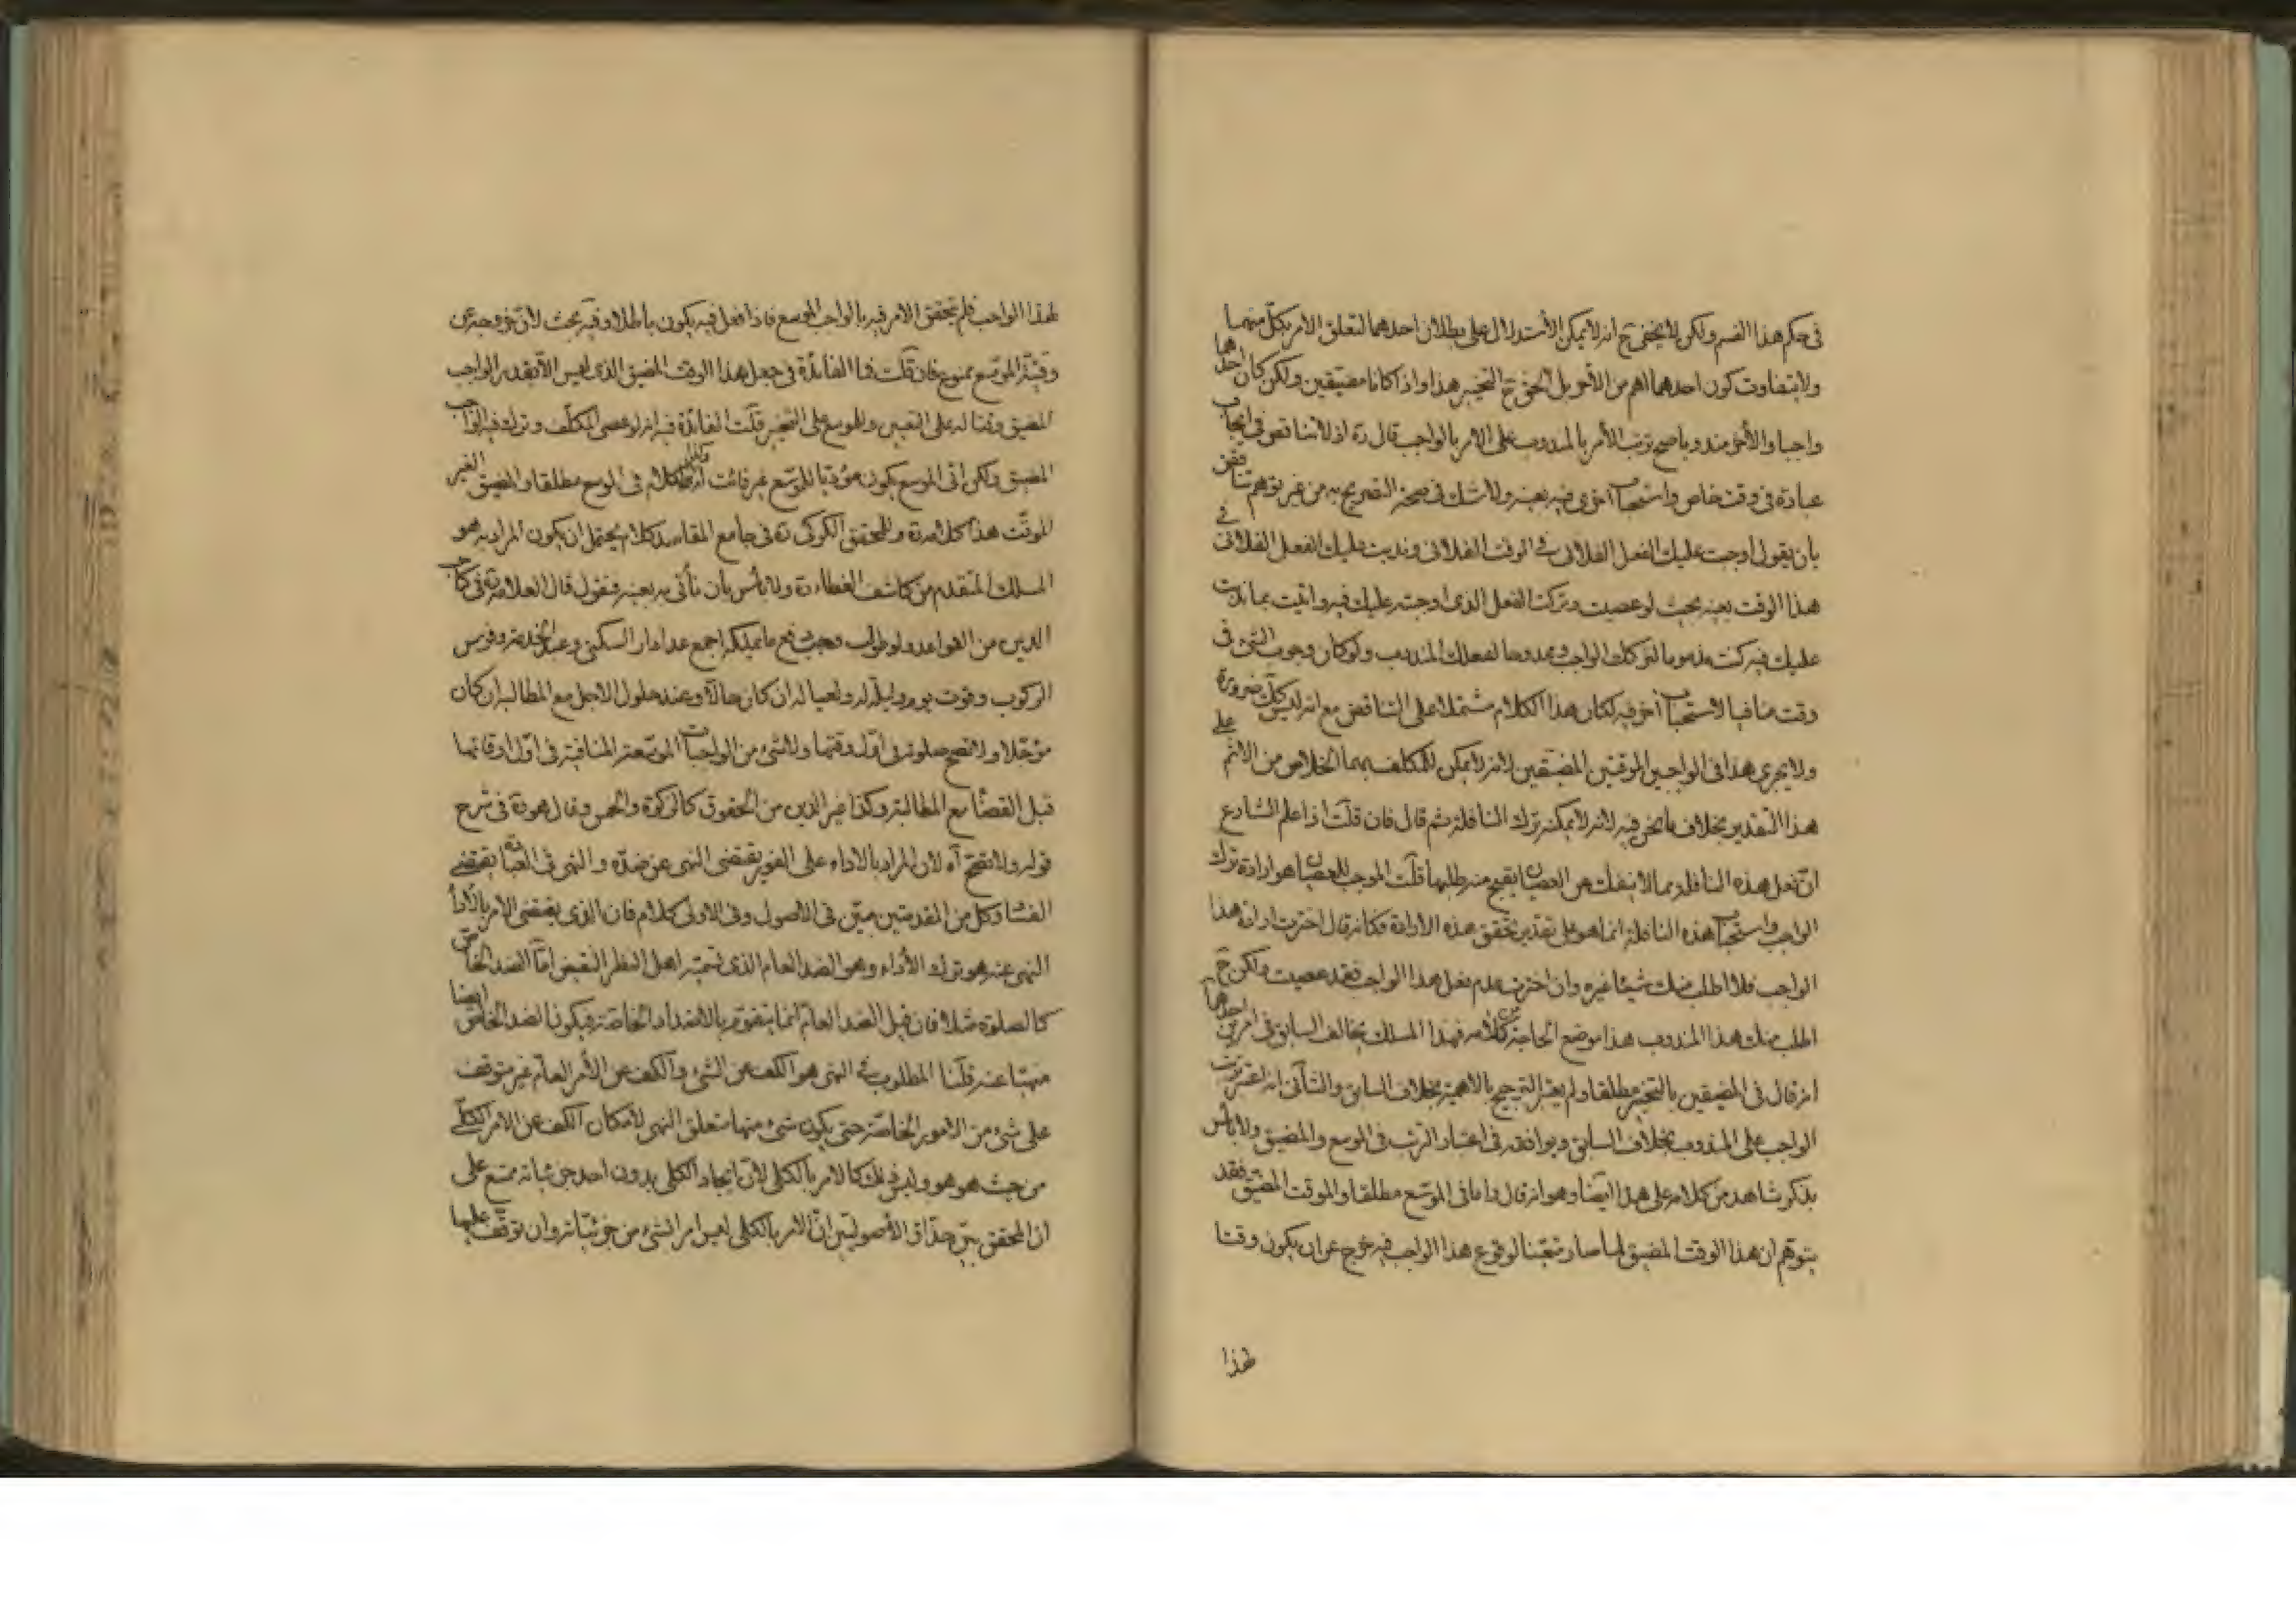 في حكم هذا القسم ولكن لا يخفى ح انه لا يمكن الاستدلال على بطلان احدهما لتعلق الامر بكل منهما
ولا يتفاوت كون احدهما اهم من الآخر بل الحق ح التخيير هذا واذا كانا مضيقين ولكن كان احدهما
واجبا والآخر مندوبا صح ترتب الأمر بالمندوب على الامر بالواجب قال ره اذ لا تناقض في ايجاب
عبادة في وقت خاص واستحباب اخرى فيه بعينه ولا شك في صحة التصريح به من غير توهم تناقض
بان يقول اوجبت عليك الفعل الفلاني في الوقت الفلاني وندبت عليك الفعل الفلاني في
هذا الوقت بعينه بحيث لو عصيت وتركت الفعل الذي اوجبته عليك فيه واتيت بما ندبت
عليك فيه كنت مذموما لتركك الواجب وممدوحا لفعلك المندوب ولو كان وجوب الشئ في
وقت منافيا لاستحباب آخر فيه لكان هذا الكلام مشتملا على التناقض مع انه ليس كك ضرورة
ولا يجري هذا في الواجبين الموقتين المضيقين لانه لا يمكن للمكلف بهما الخلاص من الاثم على
هذا التقدير بخلاف ما نحن فيه لانه لا يمكنه ترك النافلة ثم قال فان قلت اذا علم الشارع
ان فعل هذه النافلة مما لا ينفك عن العصيان يقبح منه طلبها قلت الموجب للعصيان هو ارادة ترك
الواجب واستحباب هذه النافلة انما هو على تقدير تحقق هذه الارادة فكانه قال اخترت ارادة هذا
الواجب فلا اطلب منك شيئا غيره وان اخترت عدم فعل هذا الواجب فقد عصيت ولكن ح
اطلب منك هذا المندوب هذا موضع الحاجة من كلامه فهذا المسلك يخالف السابق في امرين احدهما
انه قال في المضيقين بالتخيير مطلقا ولم يعتبر الترجيح بالاهمية بخلاف السابق والثاني انه اعتبر ترتب
الواجب على المندوب بخلاف السابق ويوافقه في اعتبار الترتب في الموسع والمضيق ولا بأس
بذكر شاهد من كلامه على هذا ايضا وهو انه قال واما في الموسع مطلقا والموقت المضيق فقد
يتوهم ان هذا الوقت المضيق لما صار متعينا لوقوع هذا الواجب فيه خرج عن ان يكون وقتا
لهذا
لهذا الواجب فلم يتحقق الامر فيه بالواجب الموسع فاذا فعل فيه يكون باطلا وفيه بحث لان خروجه عن
وقتية الموسع ممنوع فان قلت فما الفائدة في جعل هذا الوقت المضيق الذي ليس الا بقدر الواجب
المضيق وقتا له على التعيين وللموسع على التخيير قلت الفائدة فيه انه لو عصى المكلف وترك فيه الواجب
المضيق ولكن اتى الموسع يكون مؤديا للموسع غير فائت وكذا الكلام في الموسع مطلقا والمضيق الغير
الموقت هذا كلامه ره وللمحقق الكركي ره في جامع المقاصد كلام يحتمل ان يكون المراد به هو
المسلك المتقدم من كاشف الغطاء ره ولا بأس بان نأتي به بعينه فنقول قال العلامة ره في كتاب
الدين من القواعد ولو طولب وجب دفع ما يملكه اجمع عدا دار السكنى وعبد الخدمة وفرس
الركوب وقوت يوم وليلة له ولعياله ان كان حالا وعند حلول الاجل مع المطالبة ان كان
مؤجلا ولا تصح صلوته في اول وقتها ولا شئ من الواجبات الموسعة المنافية في اول اوقاتها
قبل القضاء مع المطالبة وكذا غير الدين من الحقوق كالزكوة والخمس وقال هو ره في شرح
قوله ولا تصح آه لان المراد بالاداء على الفور يقتضى النهى عن ضده والنهى في العبادة يقتضي
الفساد وكل من المقدمتين مبين في الاصول وفي الاولى كلام فان الذي يقتضى الامر بالأداء
النهى عنه هو ترك الأداء وهو الضد العام الذي تسميه اهل النظر النقيض اما الضد الخاص
كالصلوة مثلا فان قيل الضد العام انما يتقوم بالاضداد الخاصة فيكون الضد الخاص ايضا
منهيا عنه قلنا المطلوب في النهى هو الكف عن الشئ والكف عن الأمر العام غير متوقف
على شئ من الامور الخاصة حتى يكون شئ منها متعلق النهى لامكان الكف عن الامر الكلي
من حيث هو هو وليس ذلك كالامر بالكلي لان ايجاد الكلي بدون احد جزئياته ممتنع على
ان المحقق بين حذاق الأصوليين ان الامر بالكلى ليس امر الشئ من جزئياته وان توقف عليها